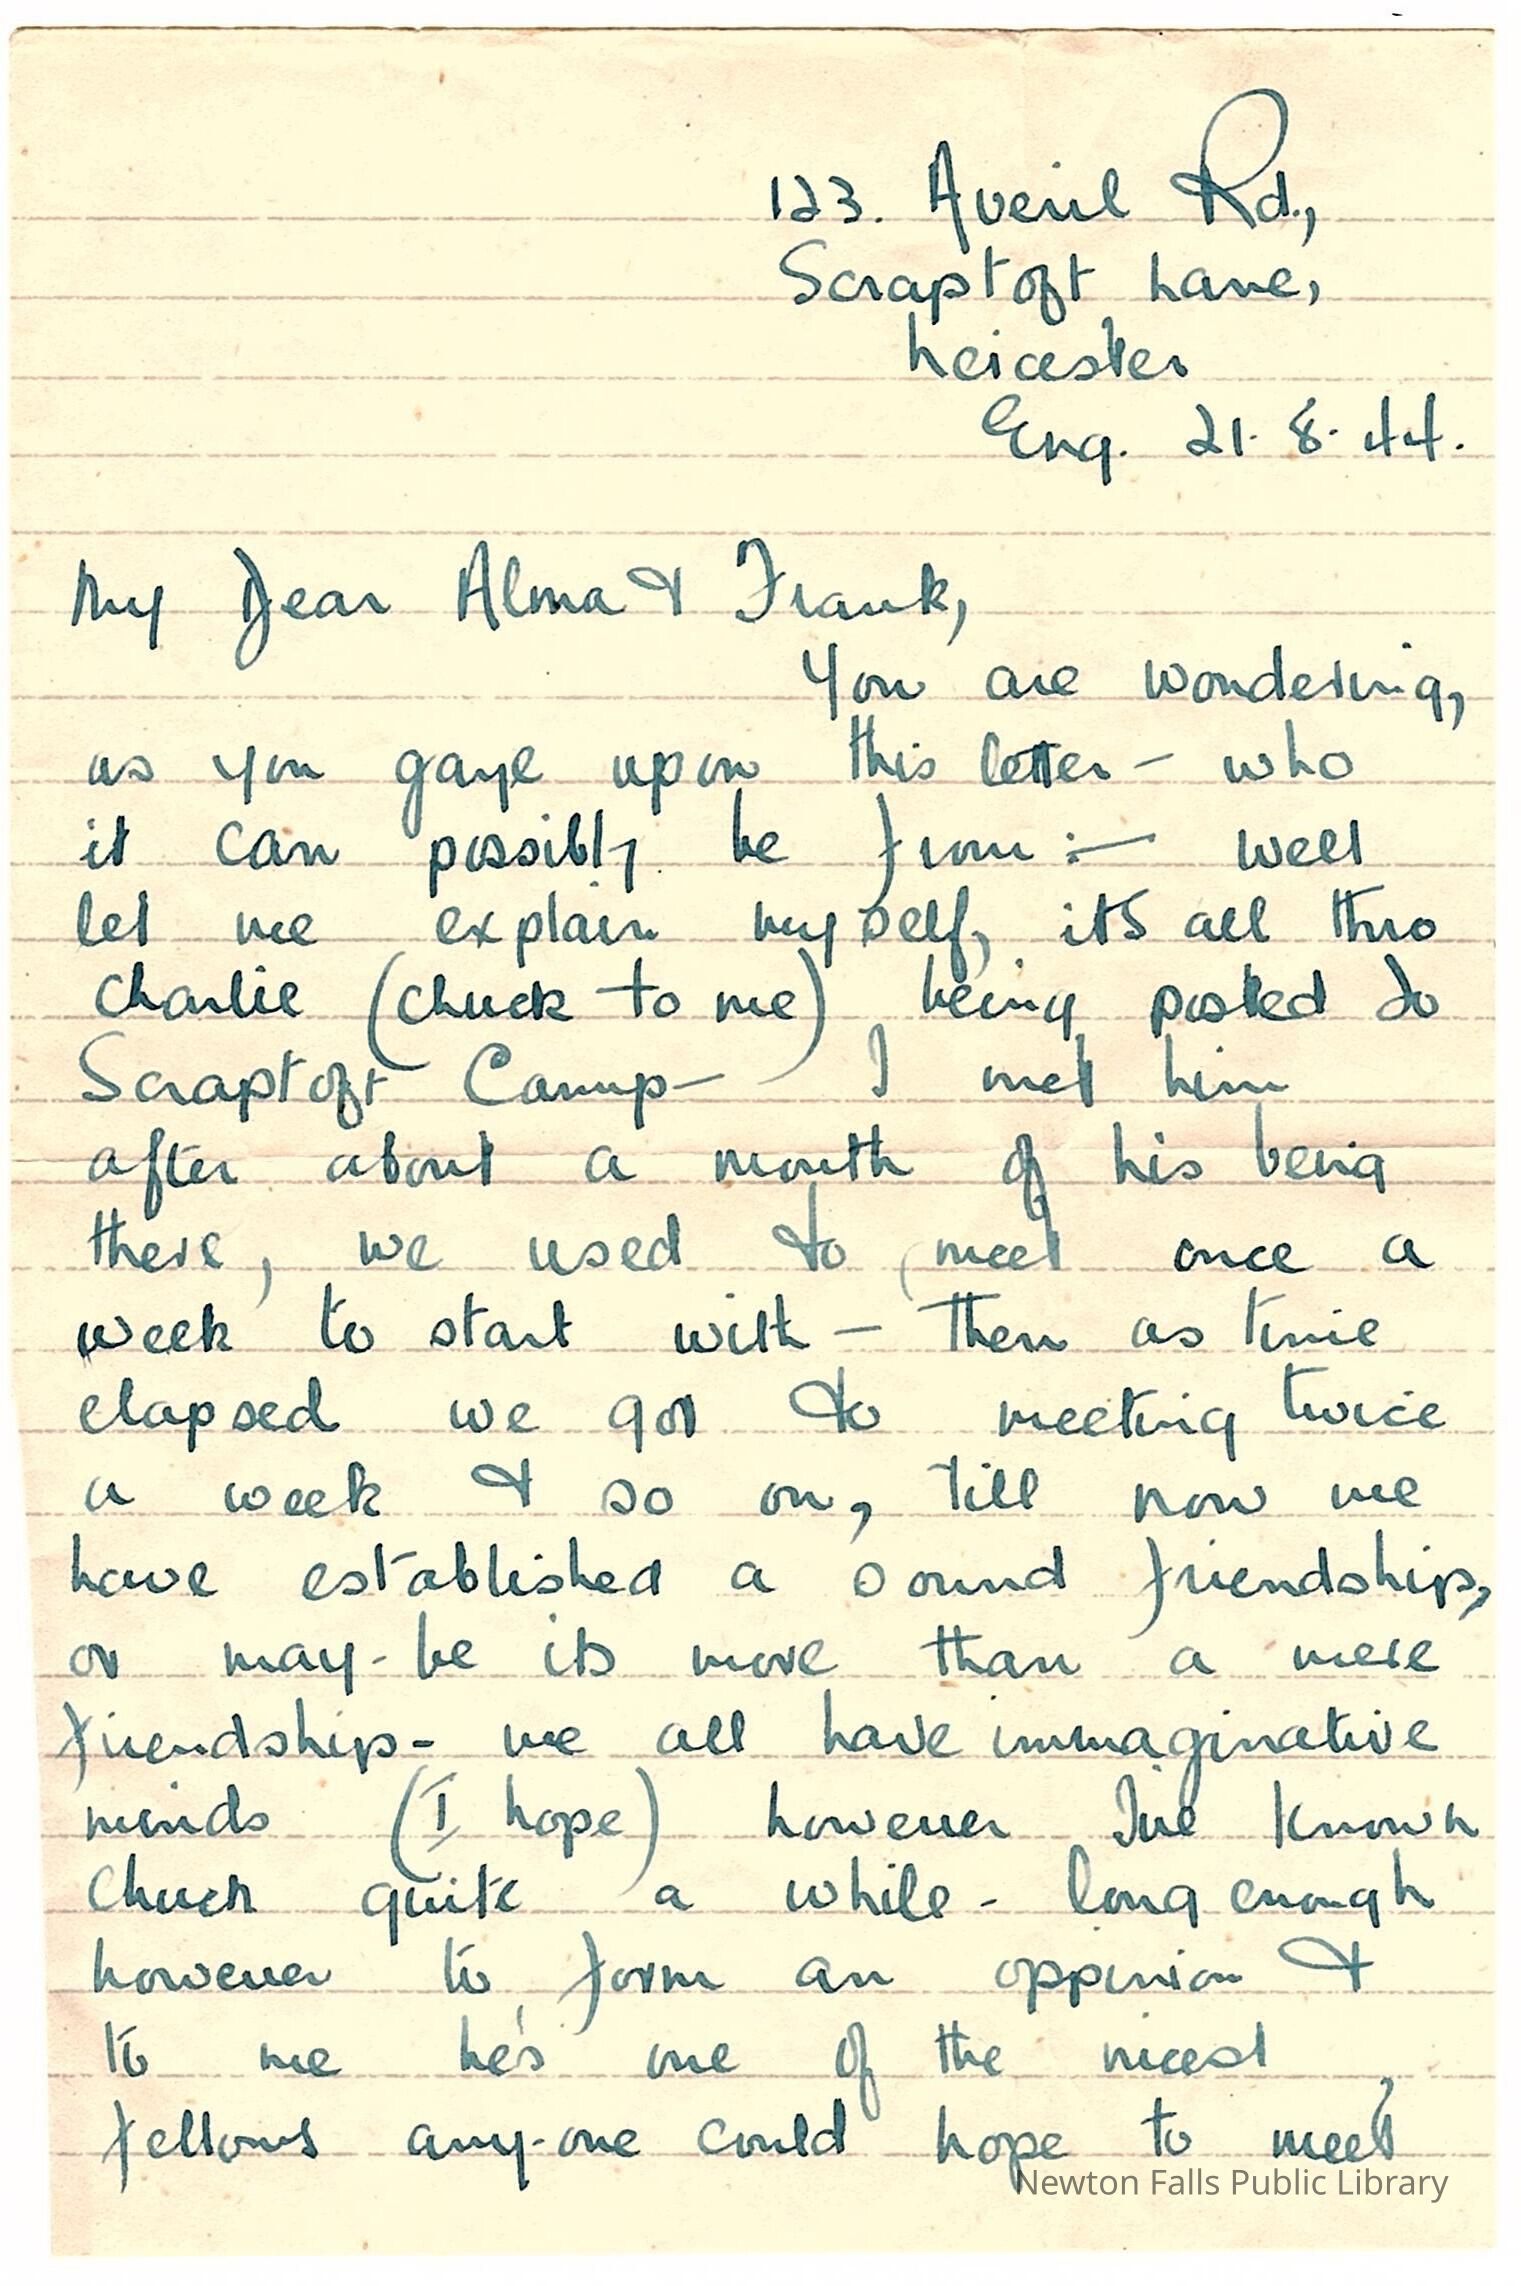 123. Averil Rd.,
Scraptoft Lane,
Leicester
Eng. 21. 8. 44.
My Dear Alma & Frank,
You are wondering,
as you gaze upon this letter – who
it can possibly be from :– well
let me explain myself, it's all thro
Charlie (Chuck to me) being posted to
Scraptoft Camp – I met him
after about a month of his being
there, we used to meet once a
week to start with – then as time
elapsed we got to meeting twice
a week & so on, till now we
have established a sound friendship,
or may-be its more than a mere
friendship – we all have immaginative
minds (I hope) however I've known
Chuck quite a while – long enough
however to form an oppinion &
to me he's one of the nicest
fellows any-one could hope to meet,
Newton Falls Public Library